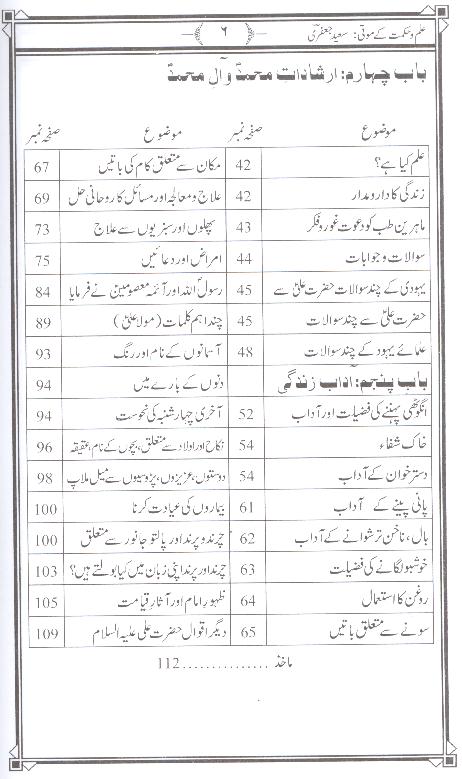 علم و حکمت کے موتی: سعید جعفری
۶
باب چہارم: ارشادات محمدؐ و آلِ محمدؐ
موضوع صفحہ نمبر موضوع صفحہ نمبر
علم کیا ہے؟ 42 مکان سے متعلق کام کی باتیں 67
زندگی کا دارومدار 42 علاج و معالجہ اور مسائل کا روحانی حل 69
ماہرین طب کو دعوت غور و فکر 43 پھلوں اور سبزیوں سے علاج 73
سوالات و جوابات 44 امراض اور دعائیں 75
یہودی کے چند سوالات حضرت علیؑ سے 45 رسولؐ اللہ اور آئمہ معصومینؑ نے فرمایا 84
حضرت علیؑ سے چند سوالات 45 چند اہم کلمات (مولا علیؑ) 89
علمائے یہود کے چند سوالات 48 آسمانوں کے نام اور رنگ 93
باب پنجم: آداب زندگی دنوں کے بارے میں 94
انگوٹھی پہننے کی فضیلت اور آداب 52 آخری چہار شنبہ کی نحوست 94
خاک شفاء 54 نکاح اور اولاد سے متعلق، بچوں کے نام، عقیقہ 96
دسترخوان کے آداب 54 دوستوں، عزیزوں، پڑوسیوں سے میل ملاپ 98
پانی پینے کے آداب 61 بیماروں کی عیادت کرنا 100
بال، ناخن ترشوانے کے آداب 62 چرند و پرند اور پالتو جانور سے متعلق 100
خوشبو لگانے کی فضیلت 63 چرند اور پرند اپنی زبان میں کیا بولتے ہیں؟ 103
روغن کا استعمال 64 ظہور امام اور آثار قیامت 105
سونے سے متعلق باتیں 65 دیگر اقوال حضرت علی علیہ السلام 109
ماخذ ............... 112